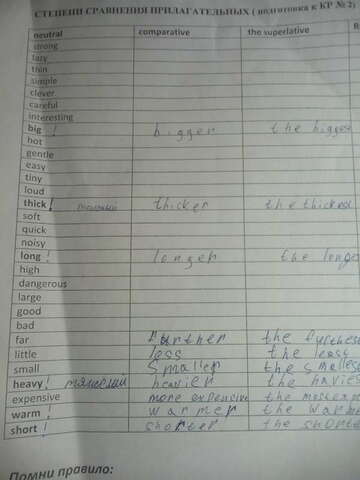 СТЕПЕНИ СРАВНЕНИЯ ПРИЛАГАТЕЛЬНЫХ ( подготовка к КР № 2)
neutral comparative the superlative
strong
lazy
thin
simple
clever
careful
interesting
big ! bigger the bigges
hot
gentle
easy
tiny
loud
thick ! толстый thicker the thickes
soft
quick
noisy
long ! longer the longe
high
dangerous
large
good
bad
far further the furthes
little less the leas
small smaller the smalles
heavy ! тяжелый heavier the havies
expensive more expensive the most exp
warm ! warmer the warme
short ! shorter the shorte
Помни правило: